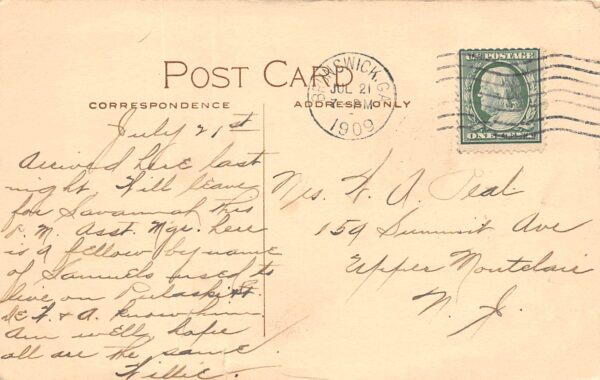 POST CARD
CORRESPONDENCE
ADDRESS ONLY
BRUNSWICK, GA.
JUL 21
PM
1909
U.S. POSTAGE
ONE CENT
July 21st
Arrived here last
night. Will leave
for Savannah this
P.M. Asst. Mgr. here
is a fellow by name
of Samuels used to
live on Pulaski St.
& A. know him.
Am well, hope
all are the same.
Willie.
Mrs. W. A. Peal
159 Summit Ave
Upper Montclair
N. J.